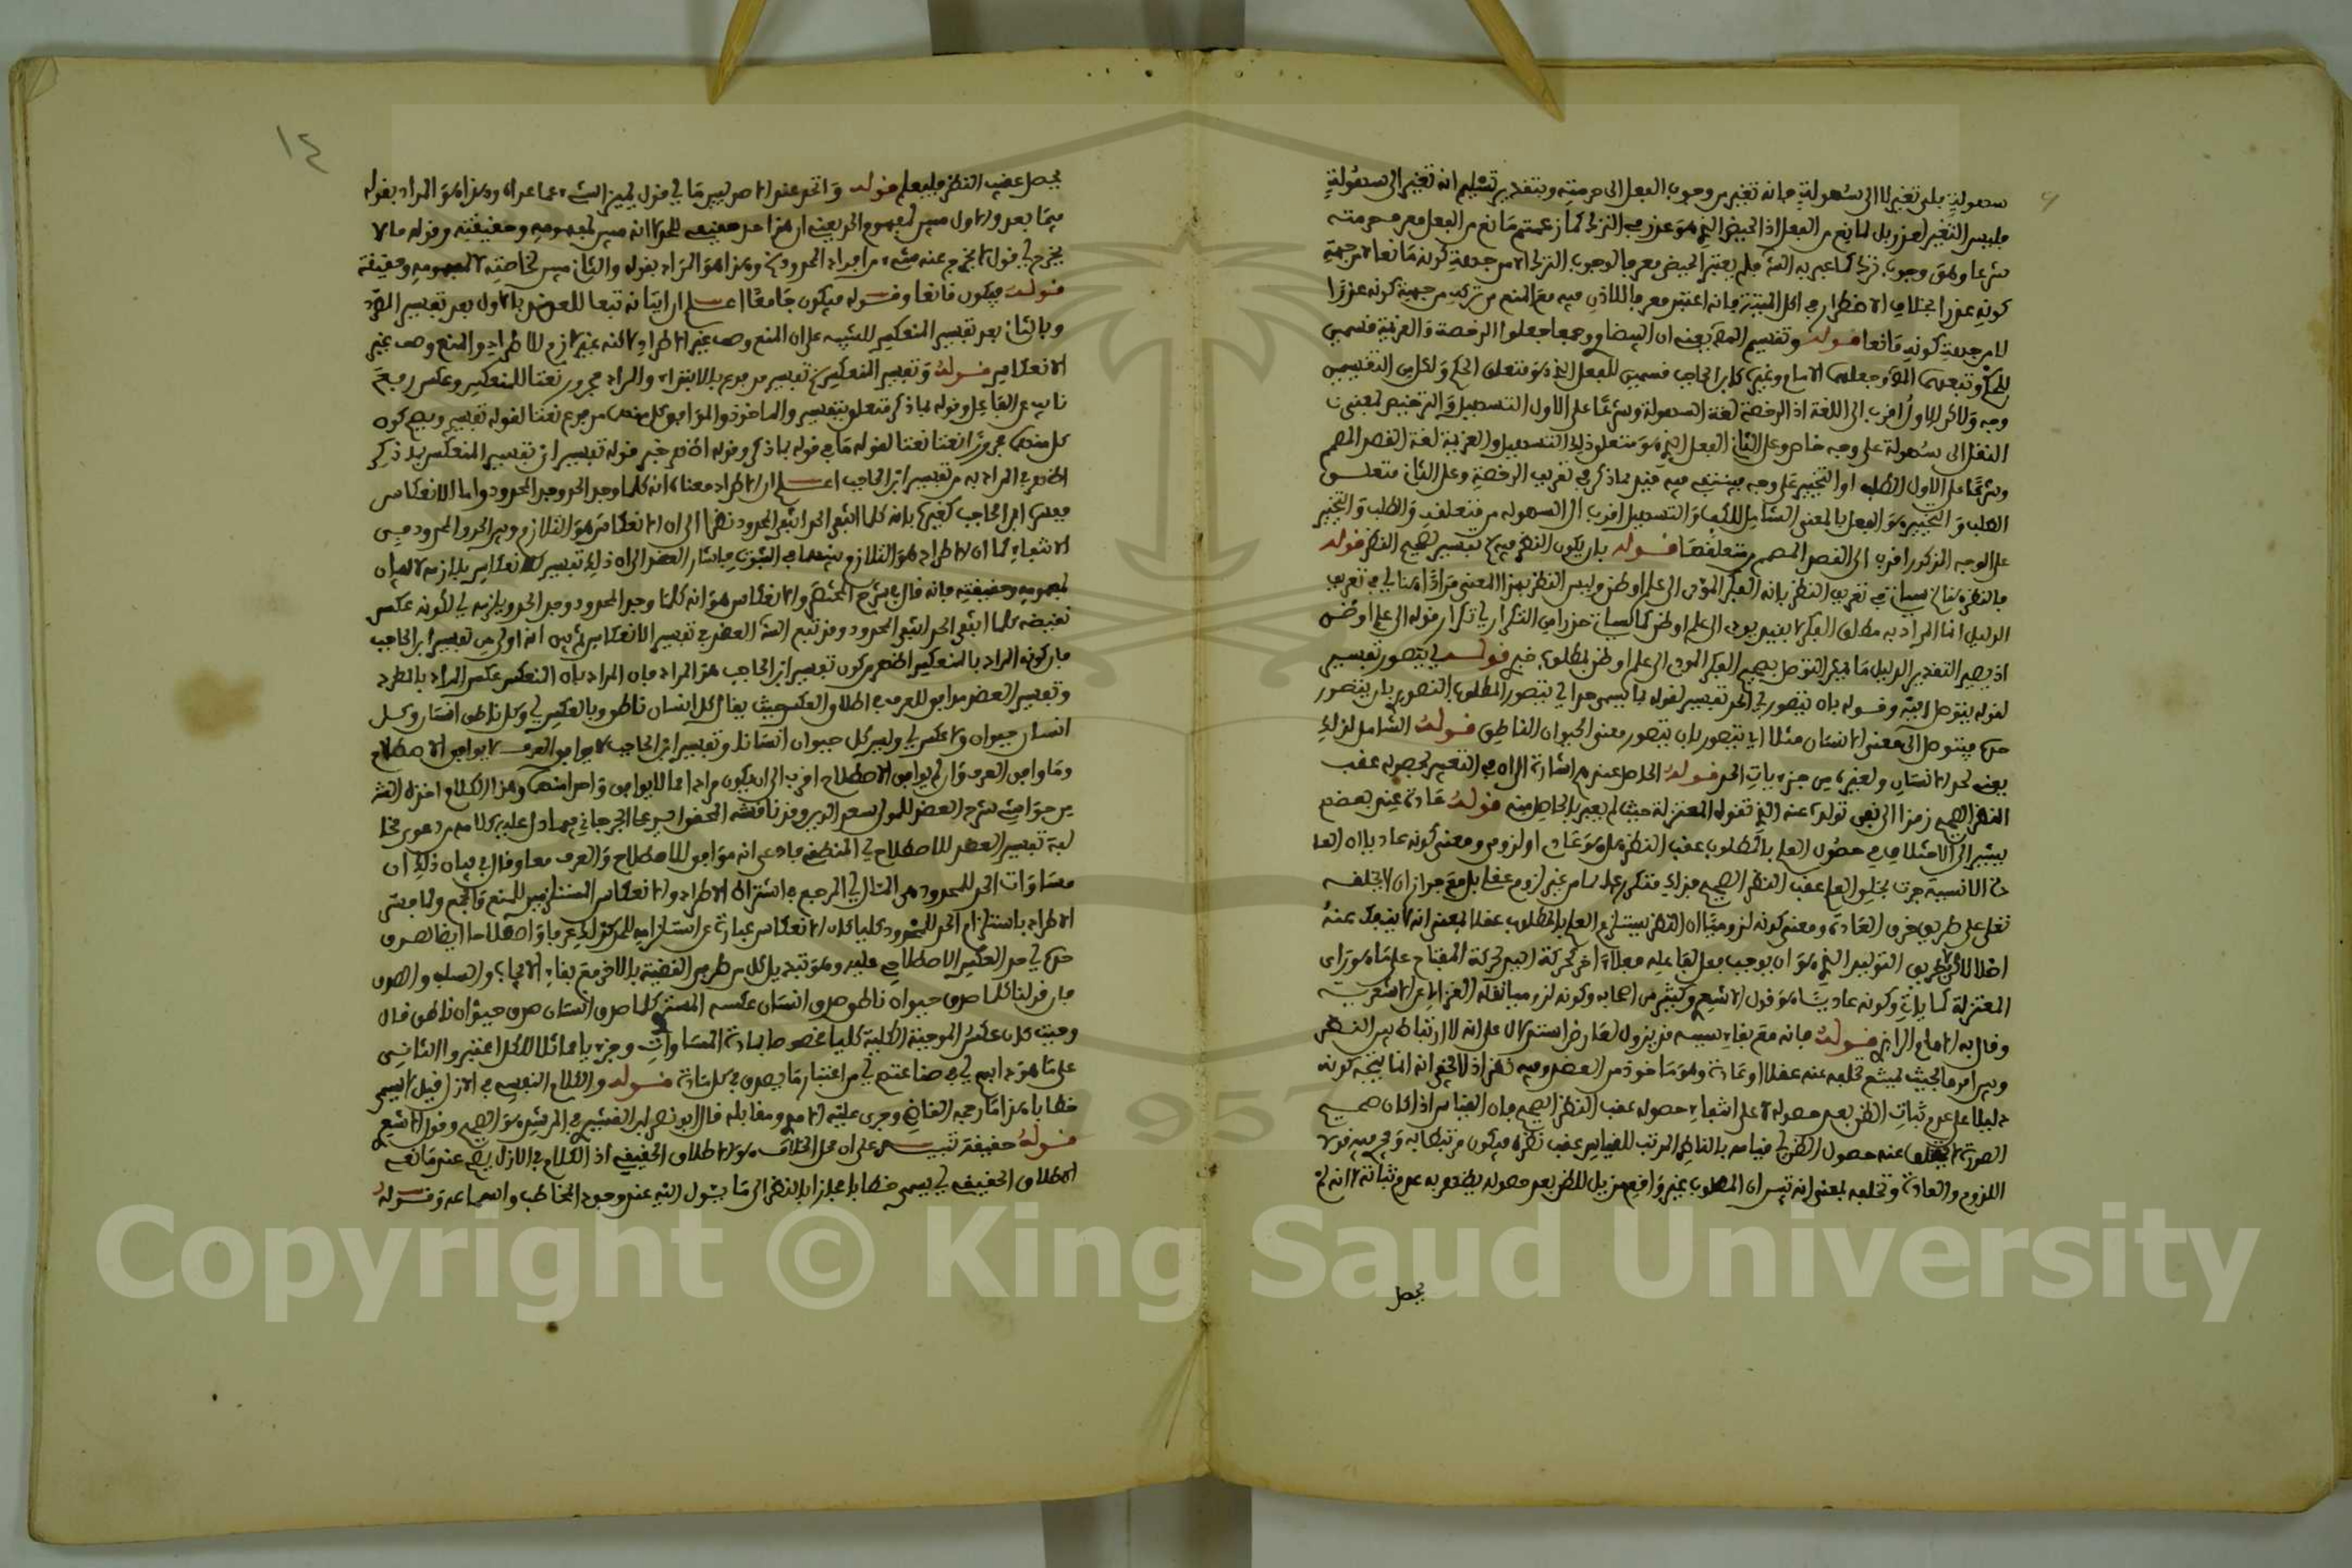 سهولة بل تغير لا الى سهولة فانه تغير من وجوب الفعل الى حرمته وبتقدير تسليم انه تغير الى سهولة
فليس التغير لعذر بل لمانع من الفعل اذ الحيض الذي هو عذر في الترك كما زعمتم مانع من الفعل فمن حرمته
شرعا وهو وجوب تركه كما عبر به فلم يعتبر الحيض معرفا لوجوب الترك الا من جهة كونه مانعا لا من جهة
كونه عذرا بخلاف الاضطرار في اكل الميتة فانه اعتبر معرفا للاذن فيه مع المنع من تركه من جهة كونه عذرا
لا من جهة كونه مانعا قوله وتقسيم يعني ان البيضاوي وجمعا جعلوا الرخصة والعزيمة قسمين
للحكم وتبعهم وجعلهما الامام وغيره كابن الحاجب قسمين للفعل الذي هو متعلق الحكم ولكل من التقسيمين
وجه ولاكن الاول اقرب الى اللغة اذ الرخصة لغة السهولة وشرعا على الاول التسهيل والترخيص بمعنى
النقل الى سهولة على وجه خاص وعلى الثاني الفعل الذي هو متعلق ذلك التسهيل والعزيمة لغة القصد المصمم
وشرعا على الاول الطلب او التخيير على وجه ينتفي فيه قيد مما ذكر في تعريف الرخصة وعلى الثاني متعلق
الطلب والتخيير هو الفعل بالمعنى الشامل للكف والتسهيل اقرب الى السهولة من متعلقه والطلب والتخيير
على الوجه المذكور اقرب الى القصد المصمم من متعلقهما قوله بان يكون النظر فيه تفسير لصحيح النظر قوله
فالنظر هنا سياتي تعريف النظر بانه الفكر المؤدي الى علم او ظن وليس النظر بهذا المعنى مرادا هنا في تعريف
الدليل انما المراد به مطلق الفكر لا بقيد يودي الى علم او ظن كما سياتي حذرا من التكرار اي تكرار قوله الى علم او ظن
اذ يصير التقدير الدليل ما يمكن التوصل بصحيح الفكر المودي الى علم او ظن لمطلوب خبري قوله يتصور تفسير
لقوله يتوصل اليه وقوله بان يتصور في الحد تفسير لقوله بما يسمى حدا اي يتصور المطلوب التصوري بان يتصور
حده فيتوصل الى معنى الانسان مثلا اي يتصور بان يتصور معنى الحيوان الناطق قوله الشامل لذلك
يعني لحد الانسان ولغيره من جزءيات الحد قوله الحاصل عندهم اشارة الى ان في التعبير بحصوله عقب
النظر الصحيح رمزا الى نفي تولده عنه الذي تقوله المعتزلة حيث لم يعبر بالحاصل منه قوله عادة عند بعضهم
يشير الى الاختلاف في حصول العلم بالمطلوب عقب النظر هل هو عادي او لزومي ومعنى كونه عاديا ان العادة
الالاهية جرت بخلق العلم عقب النظر الصحيح فذلك متكرر عند تمام غير لزوم عقلي بل مع جواز ان لا يخلقه
تعلى على طريق خرق العادة ومعنى كونه لزوميا ان النظر يستلزم العلم بالمطلوب عقلا بمعنى انه لا ينفك عنه
اصلا لا على طريق التوليد الذي هو ان يوجب فعل لفاعله فعلا ءاخر كحركة اليد لحركة المفتاح على ما هو راي
المعتزلة كما ياتي وكونه عاديا هو قول الاشعري وكثير من اصحابه وكونه لزوميا نقله الغزالي عن الاشعرية
وقال به الامام الرازي قوله فانه مع بقاء سببه قد يزول لعارض استدلال على انه لا ارتباط بين الظن
وبين امر ما بحيث يمتنع تخلفه عنه عقلا او عادة وهو ماخوذ من العضد وفيه نظر اذ لا يخفى انه انما ينتج كونه
دليلا على عدم ثبات الظن بعد حصوله لا على انتفاء حصوله عقب النظر الصحيح فان القياس اذا كان صحيح
الصورة لا يتخلف عنه حصول الظن في قيامه بالناظر المرتب للقياس عقب نظره فيكون مرتبطا به وفي ميز قوله
اللزوم والعادة وتخلفه بمعنى انه تبين ان المطلوب غير واقع مزيل للظن بعد حصوله يظهر به عدم ثباته لا انه لم
يحصل
١٤
يحصل عقب النظر فليعلم قوله والحد عند الاصوليين ما اي قول يميز الشيء عما عداه وهذا هو المراد بقوله
فيما بعد والاول مبين لمفهوم الحد يعني ان هذا حد حقيقي للحد لانه مبين لمفهومه وحقيقته وقوله ما لا
يخرج اي قول لا يخرج عنه شيء من افراد المحدود وهذا هو المراد بقوله والثاني مبين لخاصته لا لمفهومه وحقيقته
قوله فيكون مانعا وقوله فيكون جامعا اعلم ان اتيانه تبعا للعضد بالاول بعد تفسير المطرد
وبالثاني بعد تفسير المنعكس للتنبيه على ان المنع وصف غير الاطراد لاكنه غير لازم للاطراد والجمع وصف غير
الانعكاس قوله وتفسير المنعكس تفسير مرفوع بالابتداء والمراد مجرور نعتا للمنعكس وعكس رفع
نايب عن الفاعل وقوله بما ذكر متعلق بتفسير والماخوذ والموافق كل منهما مرفوع نعتا لقوله تفسير ويصح كون
كل منهما مجرورا نعتا لقوله ما في قوله بما ذكر وقوله اظهر خبر قوله تفسير اي تفسير المنعكس بما ذكر
اظهر في المراد به من تفسير ابن الحاجب اعلم ان الاطراد معناه انه كلما وجد الحد وجد المحدود واما الانعكاس
ففسره ابن الحاجب كغيره بانه كلما انتفى الحد انتفى المحدود نظرا الى ان الانعكاس هو التلازم بين الحد والمحدود في
الانتفاء كما ان الاطراد هو التلازم بينهما في الثبوت واشار العضد الى ان ذلك تفسير للانعكاس بلازمه لا
لمفهومه وحقيقته فانه قال في شرح المختصر والانعكاس هو انه كلما وجد المحدود وجد الحد ويلزمه لكونه عكس
نقيضه كلما انتفى الحد انتفى المحدود وقد تبع العضد في تفسير الانعكاس ثم بين انه اولى من تفسير ابن الحاجب
فان كونه المراد بالمنعكس اظهر من كون تفسير ابن الحاجب هو المراد فان المراد بان المنعكس عكس المراد بالمطرد
وتفسير العضد موافق للعرف في اطلاق العكس حيث يقال كل انسان ناطق وبالعكس اي وكل ناطق انسان وكل
انسان حيوان ولا عكس اي وليس كل حيوان انسانا وتفسير ابن الحاجب لا يوافق العرف لا يوافق الاصطلاح
وما وافق العرف وان لم يوافق الاصطلاح اقرب الى ان يكون مرادا مما لا يوافق واحدا منهما وهذا الكلام اخذه
من حواشي شرح العضد للمولى سعد الدين وقد ناقشه المحقق الجرجاني فيما دل عليه كلامه من دعوى مخا
لفة تفسير العضد للاصطلاح المنطقي فادعى انه موافق للاصطلاح والعرف معا وقال في بيان ذلك ان
مساوات الحد للمحدود هي المتال المرجع في اشتراط الاطراد والانعكاس المستلزمين للمنع والجمع ولما فسر
الاطراد باستلزام الحد للمحدود كليا كان الانعكاس عبارة عن استلزامه للحد كذلك عرفا واصطلاحا ايضا لصدق
حده اي حد العكس الاصطلاحي عليه وهو تبديل كل من طرفي القضية بالاخر مع بقاء الايجاب والسلب والصدق
فان قولنا كلما صدق حيوان ناطق صدق انسان عكسه المستوي كلما صدق انسان صدق حيوان ناطق قال
وحيث كان عكس الموجبة الكلية كليا مخصوصا بمادة المساوات وجزءيا شاملا للكل اعتبروا الثاني
على ما هو دابهم في صناعتهم من اعتبار ما يصدق في كل مادة قوله والكلام النفسي في الازل قيل لا يسمى
خطابا هذا ما رجحه القاضي وجرى عليه الامدي ومقابله قال ابو نصر ابن القشيري في المرشد هو الصحيح وقول الاشعري
قوله حقيقة تنبيه على ان محل الخلاف هو الاطلاق الحقيقي اذ الكلام في الازل يصح عند مانعي
اطلاق الحقيقي ان يسمى خطابا مجازا بالنظر الى ما يئول اليه عند وجود المخاطب واسماعه وقوله